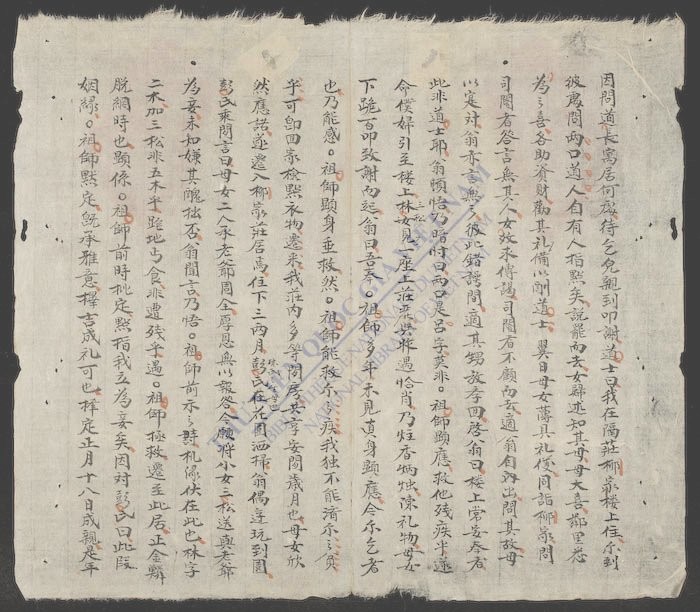 因問道長寓居何處待乞兒親到叩謝道士曰我在隔莊柳家樓上住尔到
彼處問兩口道人自有人指點矣說罷而去女歸述知其母母大喜鄰里悉
為之喜各助資財勸其礼備以酬道士翌日母女薄具礼儀同詣柳家問
司閽者答言無其人女效求傳謁司閽者不顧而去適翁自內出問其故母
以定对翁亦言無之彼此錯愕間適其甥放李回啓翁曰樓上常安奉者
此非道士耶翁頓悟乃暗忖曰兩口是呂字矣非祖師顕應救他殘疾乎遂
命僕婦引至樓上林女見座上莊嚴與昨遇恰肖乃炷香炳燭陳礼物母女
下跪百叩致謝而起翁曰吾奉祖師多年未見真身顕應今尔乞者
也乃能感祖師顕身垂救然祖師能救尔之疾我独不能濟尔之貧
乎可卽回家檢點衣物遷來我莊內多等閒房共享安閒歲月也母女欣
然應諾遂遷入柳家莊居焉住下三両月彭氏在花園洒掃翁偶逹玩到園
彭氏乘間言曰母女二人承老爺周全厚恩無以報答今願将小女三松送與老爺
為妾未知嫌其醜拙否翁聞言乃悟祖師前示之詩机缘伏在此也林字
二木加三松非五木乎跪地丐食非遭残乎遇祖師極救遷至此居正金鱗
脱網時也顕係祖師前時批定點指我立為妾矣因对彭氏曰此段
姻緣祖師點定旣承雅意擇吉成礼可也擇定正月十八日成親是年
THƯ VIỆN QUỐC GIA VIỆT NAM
NATIONAL LIBRARY OF VIETNAM